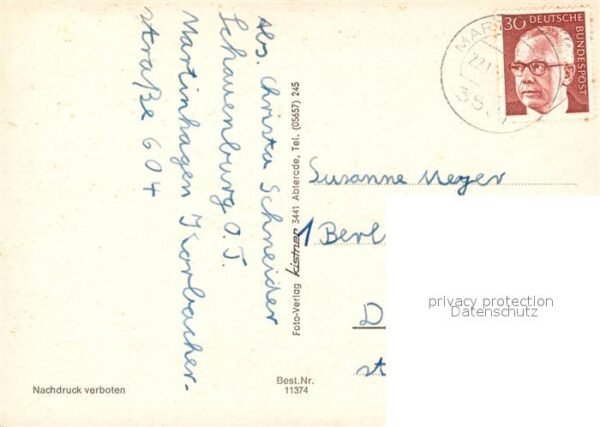 Abs. Christa Schneider
Schauenburg O.T.
Martinhagen Korbacher-
straße 604
Foto-Verlag kistner 3441 Abterode, Tel. (05657) 245
30 DEUTSCHE
BUNDESPOST
MAR
22.1
355
Susanne Meyer
1 Berl
D
st
privacy protection
Datenschutz
Nachdruck verboten
Best.Nr.
11374